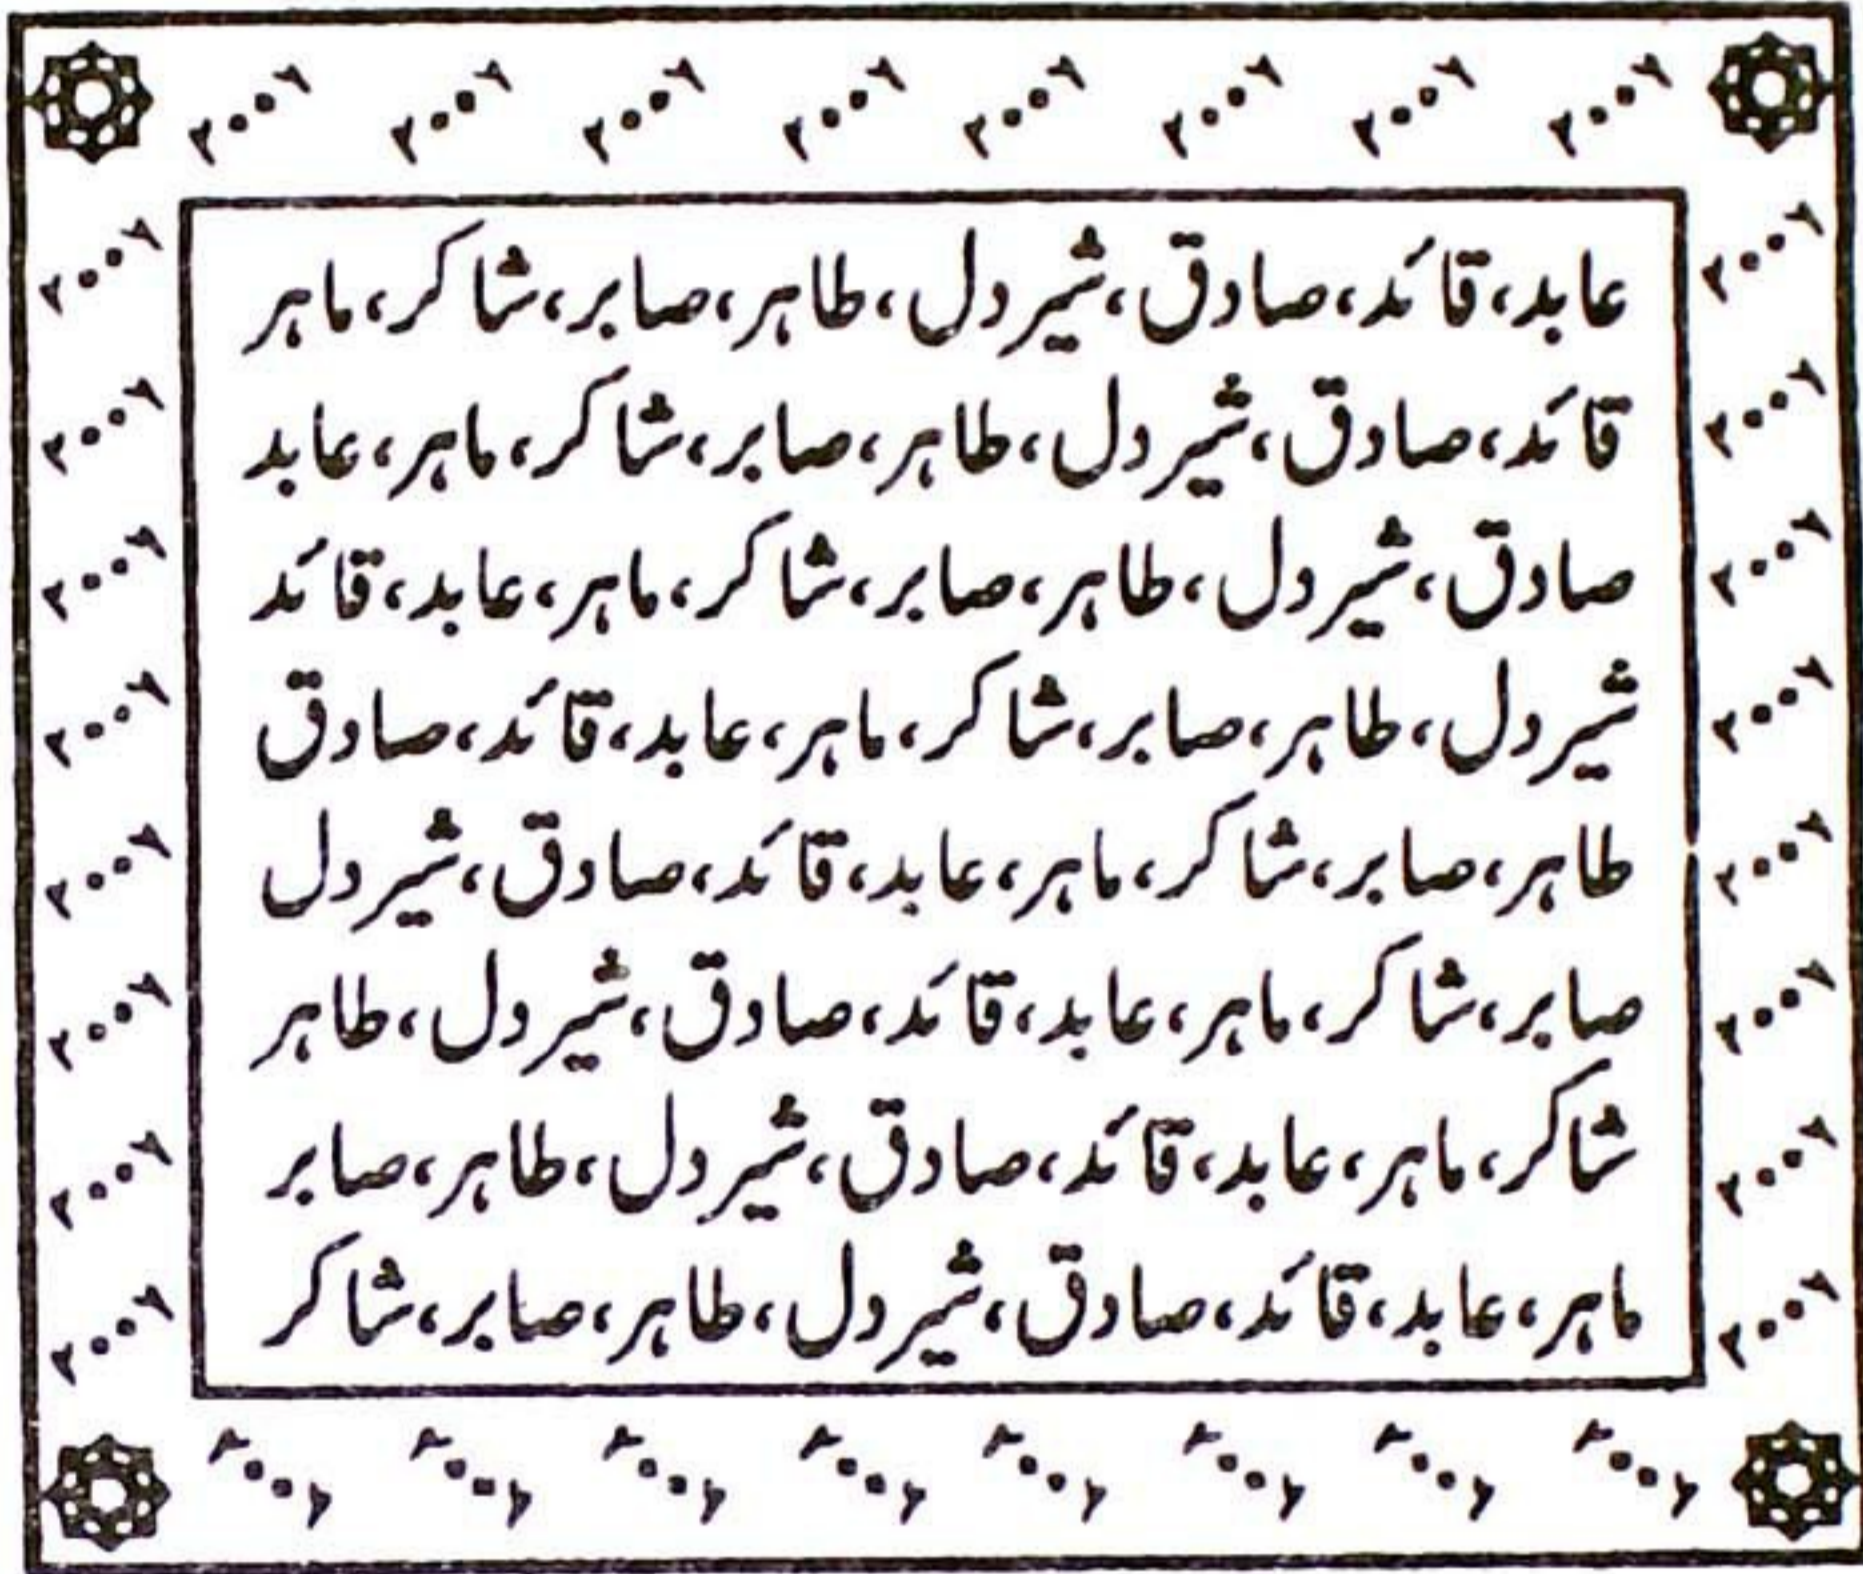 ۲۰۰۶ ۲۰۰۶ ۲۰۰۶ ۲۰۰۶ ۲۰۰۶ ۲۰۰۶ ۲۰۰۶ ۲۰۰۶
۲۰۰۶ عابد، قائد، صادق، شیر دل، طاہر، صابر، شاکر، ماہر ۲۰۰۶
۲۰۰۶ قائد، صادق، شیر دل، طاہر، صابر، شاکر، ماہر، عابد ۲۰۰۶
۲۰۰۶ صادق، شیر دل، طاہر، صابر، شاکر، ماہر، عابد، قائد ۲۰۰۶
۲۰۰۶ شیر دل، طاہر، صابر، شاکر، ماہر، عابد، قائد، صادق ۲۰۰۶
۲۰۰۶ طاہر، صابر، شاکر، ماہر، عابد، قائد، صادق، شیر دل ۲۰۰۶
۲۰۰۶ صابر، شاکر، ماہر، عابد، قائد، صادق، شیر دل، طاہر ۲۰۰۶
۲۰۰۶ شاکر، ماہر، عابد، قائد، صادق، شیر دل، طاہر، صابر ۲۰۰۶
۲۰۰۶ ماہر، عابد، قائد، صادق، شیر دل، طاہر، صابر، شاکر ۲۰۰۶
۲۰۰۶ ۲۰۰۶ ۲۰۰۶ ۲۰۰۶ ۲۰۰۶ ۲۰۰۶ ۲۰۰۶ ۲۰۰۶